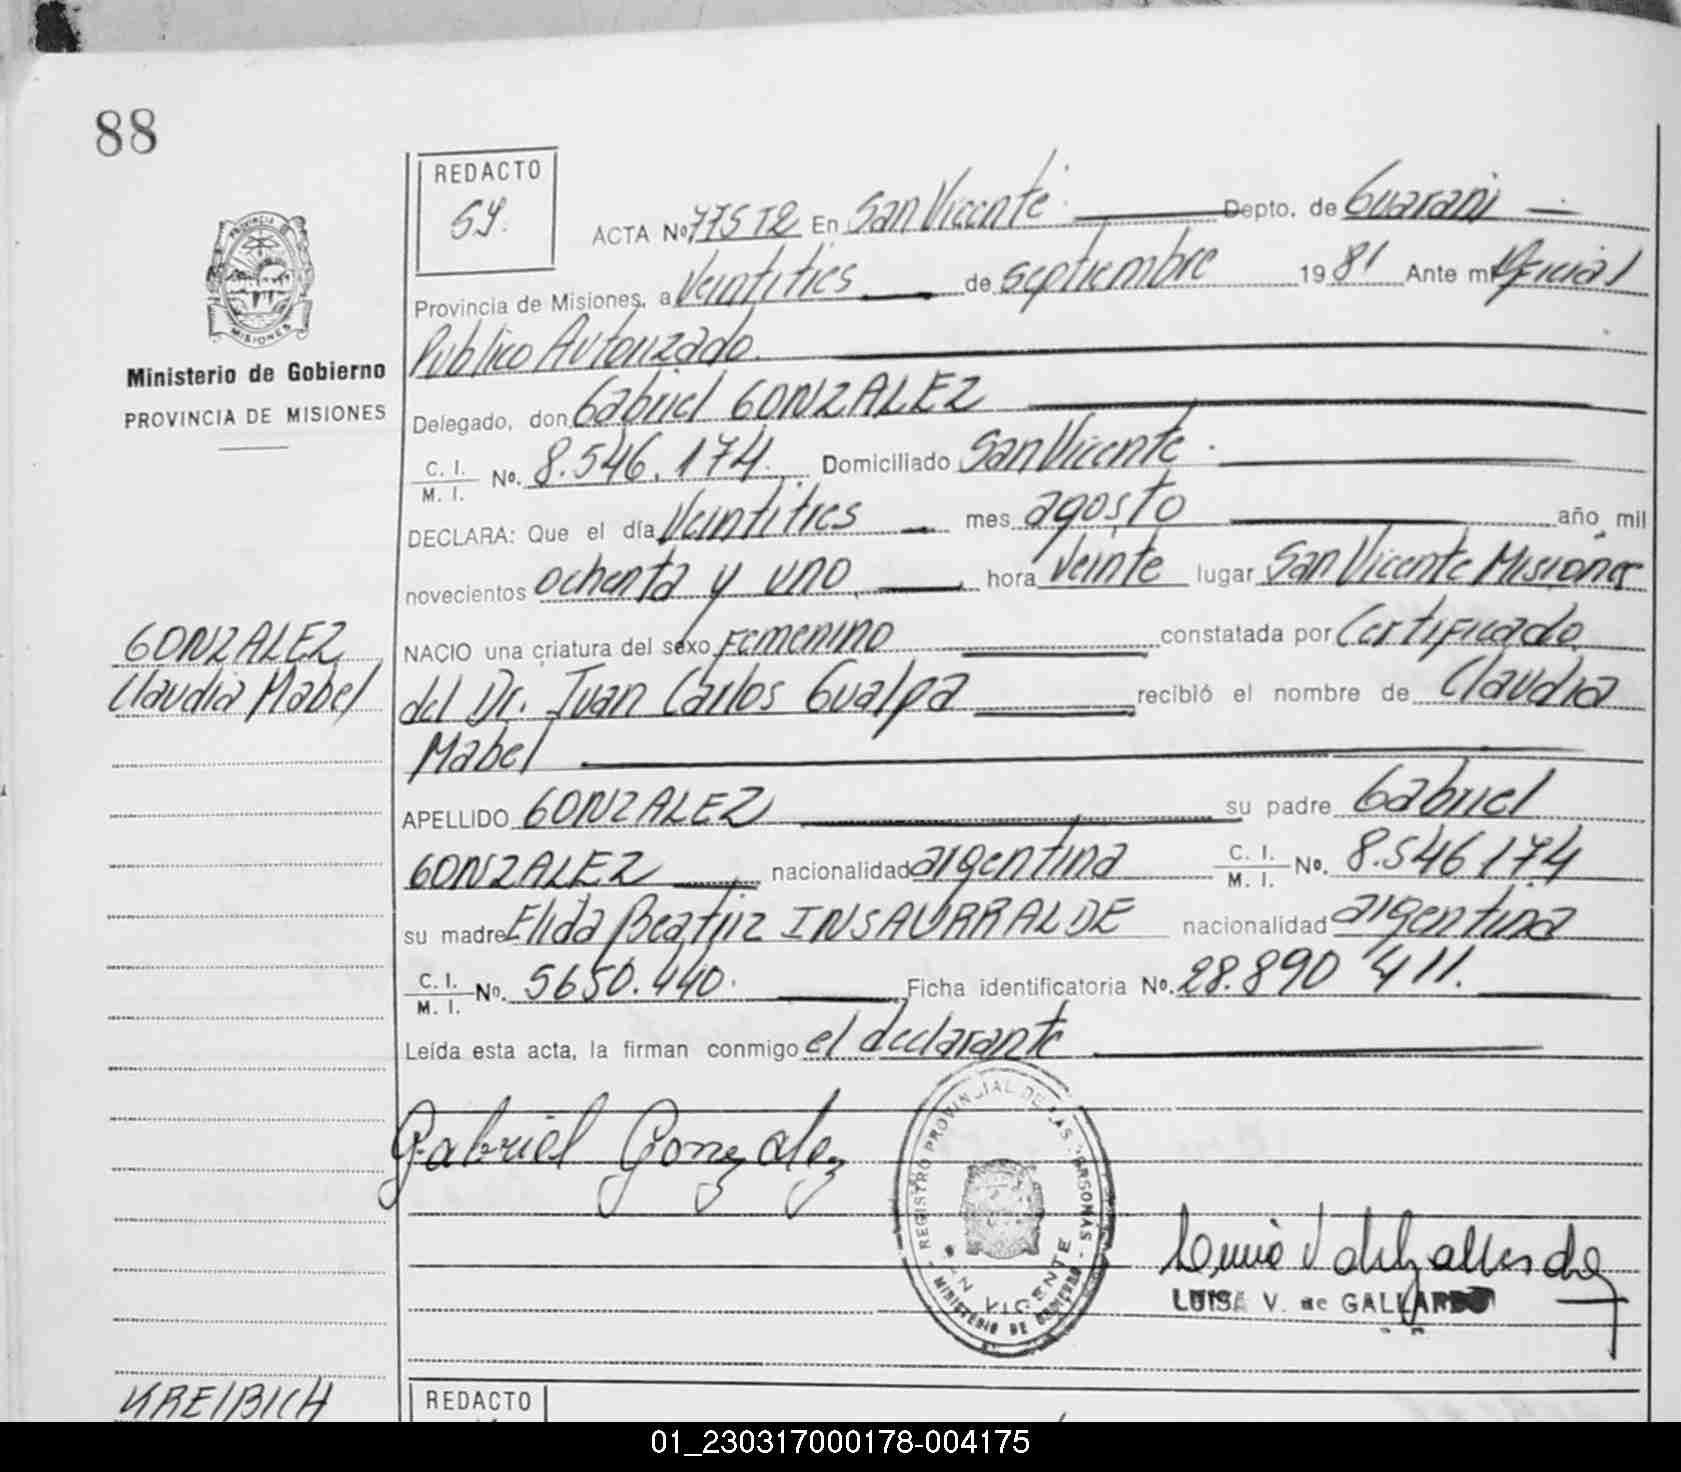 88
REDACTO
SY.
ACTA No 775 T2 En San Vicente Depto. de Guarani
Provincia de Misiones, a Veintitres de Septiembre 1981 Ante mi Oficial
Publico Autorizado.
Delegado, don Gabriel GONZALEZ
C. I.
M. I. No. 8.546.174. Domiciliado San Vicente.
DECLARA: Que el día Veintitres mes agosto año mil
novecientos ochenta y uno hora Veinte lugar San Vicente Misiones
NACIO una criatura del sexo Femenino constatada por Certificado
del Dr. Juan Carlos Gualpa recibió el nombre de Claudia
Mabel
APELLIDO GONZALEZ su padre Gabriel
GONZALEZ nacionalidad argentina C. I.
M. I. No. 8.546174
su madre Elida Beatriz INSAURRALDE nacionalidad argentina
C. I.
M. I. No. 5650.440. Ficha identificatoria No. 28.890 411.
Leída esta acta, la firman conmigo el declarante
Gabriel Gonzalez
REGISTRO PROVINCIAL DE LAS PERSONAS
VICENTE
MINISTERIO DE GOBIERNO
LUISA V. de GALLARDO
PROVINCIA
MISIONES
Ministerio de Gobierno
PROVINCIA DE MISIONES
GONZALEZ
Claudia Mabel
KREIBICH
REDACTO
01_230317000178-004175